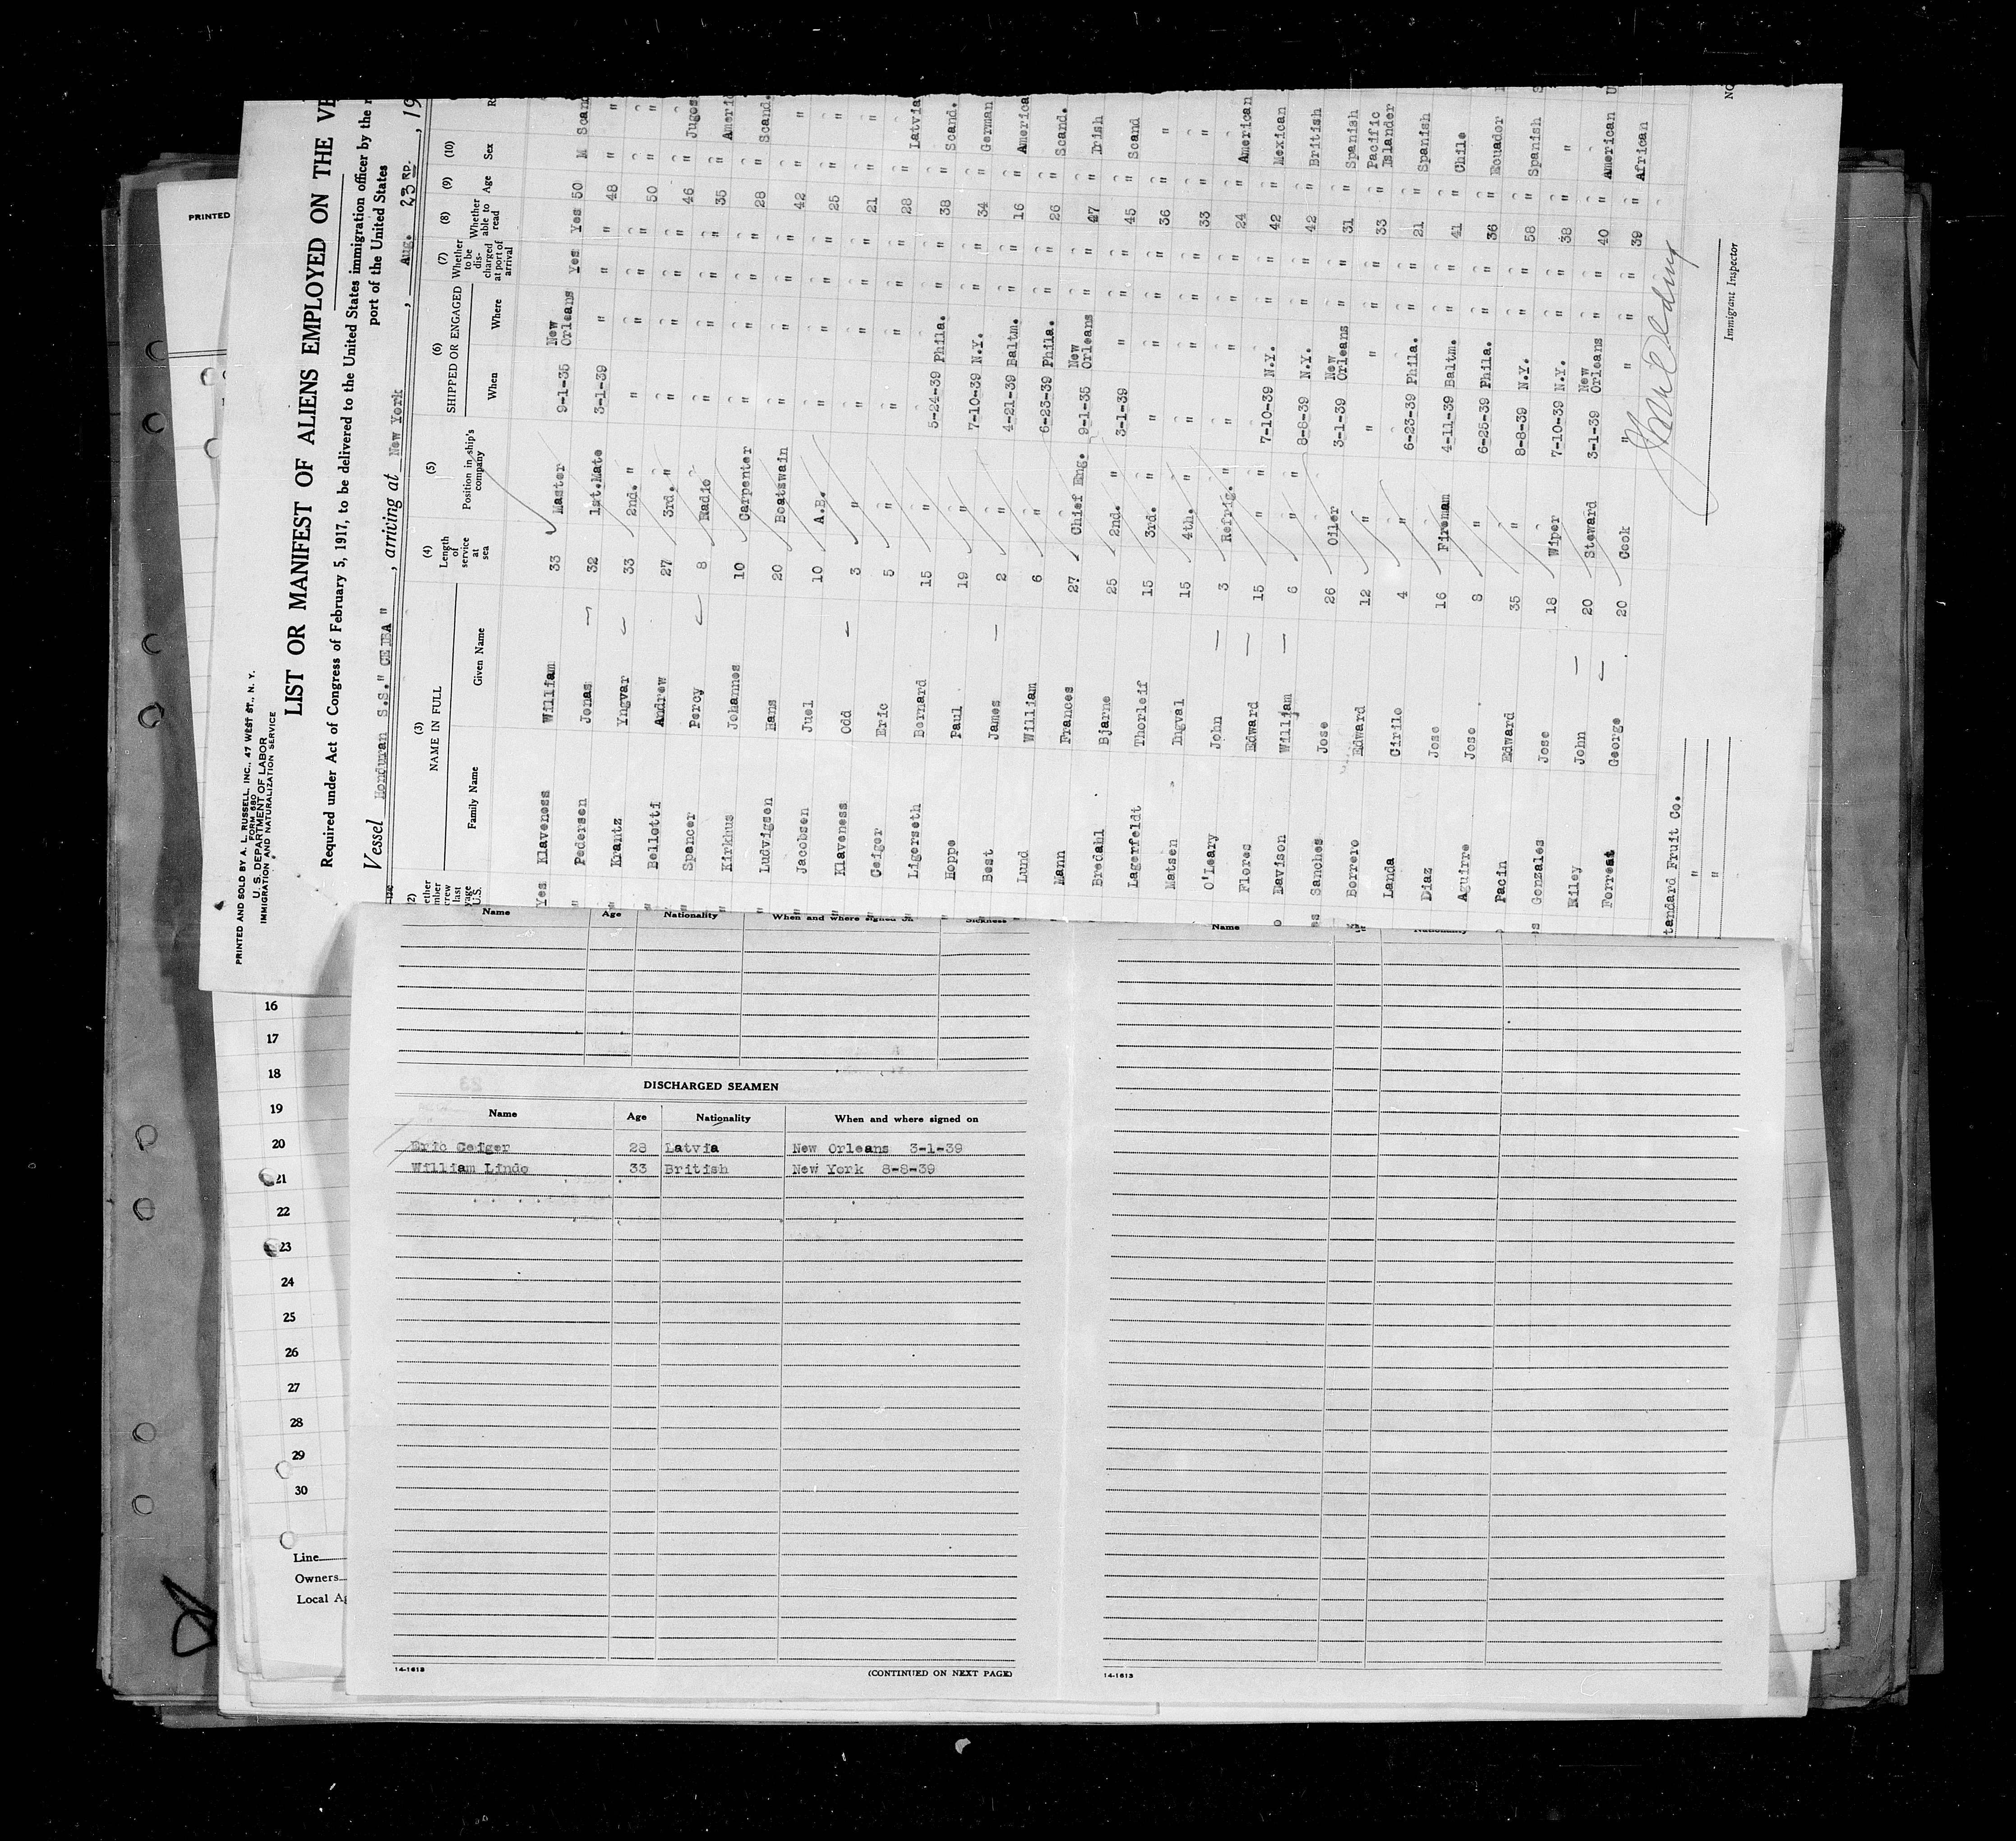 PRINTED AND SOLD BY A. L. RUSSELL, INC., 47 WEST ST., N. Y.
FORM 680
U. S. DEPARTMENT OF LABOR
IMMIGRATION AND NATURALIZATION SERVICE
LIST OR MANIFEST OF ALIENS EMPLOYED ON THE VE
Required under Act of Congress of February 5, 1917, to be delivered to the United States immigration officer by the r
port of the United States
Vessel Honduran S.S." CEIBA " , arriving at New York , Aug. 23 RD. , 19
(2) (3) (4) (5) (6) (7) (8) (9) (10)
NAME IN FULL Length of service at sea Position in ship's company SHIPPED OR ENGAGED Whether to be discharged at port of arrival Whether able to read Age Sex R
Family Name Given Name When Where
Yes Klaveness William 33 Master 9-1-35 New Orleans Yes Yes 50 M Scand
" Pedersen Jonas 32 1st.Mate 3-1-39 " " " 48 " "
" Krantz Yngvar 33 2nd. " " " " " 50 " "
" Bellotti Andrew 27 3rd. " " " " " 46 " Jugos
" Spencer Percy 8 Radio " " " " 35 " Ameri
" Kirkhus Johannes 10 Carpenter " " " " 28 " Scand.
" Ludvigsen Hans 20 Boatswain " " " " 42 " "
" Jacobsen Juel 10 A.B. " " " " 25 " "
" Klaveness Odd 3 " " " " " 21 " "
" Geiger Eric 5 " " " " " 28 " Latvia
" Ligerseth Bernard 15 " 5-24-39 Phila. " " 38 " Scand.
" Hoppe Paul 19 " 7-10-39 N.Y. " " 34 " German
" Best James 2 " 4-21-39 Baltm. " " 16 " America
" Lund William 6 " 6-23-39 Phila. " " 26 " Scand.
Mann Frances 27 Chief Eng. 9-1-35 New Orleans " " 47 " Irish
Bredahl Bjarne 25 2nd. " 3-1-39 " " " 45 " Scand
Lagerfeldt Thorleif 15 3rd. " " " " " 36 " "
Matsen Ingval 15 4th. " " " " " 33 " "
O'Leary John 3 Refrig. " " " " 24 " American
Flores Edward 15 " 7-10-39 N.Y. " " 42 " Mexican
Davison William 6 " 8-8-39 N.Y. " " 42 " British
Sanches Jose 26 Oiler 3-1-39 New Orleans " " 31 " Spanish
Borrero Edward 12 " " " " " 33 " Pacific Islander
Landa Cirilo 4 " 6-23-39 Phila. " " 21 " Spanish
Diaz Jose 16 Fireman 4-11-39 Baltm. " " 41 " Chile
Aguirre Jose 8 " 6-25-39 Phila. " " 36 " Ecuador
Pacin Edward 35 " 8-8-39 N.Y. " " 58 " Spanish
Gonzales Jose 18 Wiper 7-10-39 N.Y. " " 38 " "
Kiley John 20 Steward 3-1-39 New Orleans " " 40 " American
Forrest George 20 Cook " " " " 39 " African
tandard Fruit Co.
"
"
Immigrant Inspector
NO
PRINTED
Name Age Nationality When and where signed on Sickness
Name Nationality
DISCHARGED SEAMEN
Name Age Nationality When and where signed on
Eric Geiger 28 Latvia New Orleans 3-1-39
William Lindo 33 British New York 8-8-39
14-1613 (CONTINUED ON NEXT PAGE)
14-1613
16
17
18
19
20
21
22
23
24
25
26
27
28
29
30
Line
Owners
Local Ag